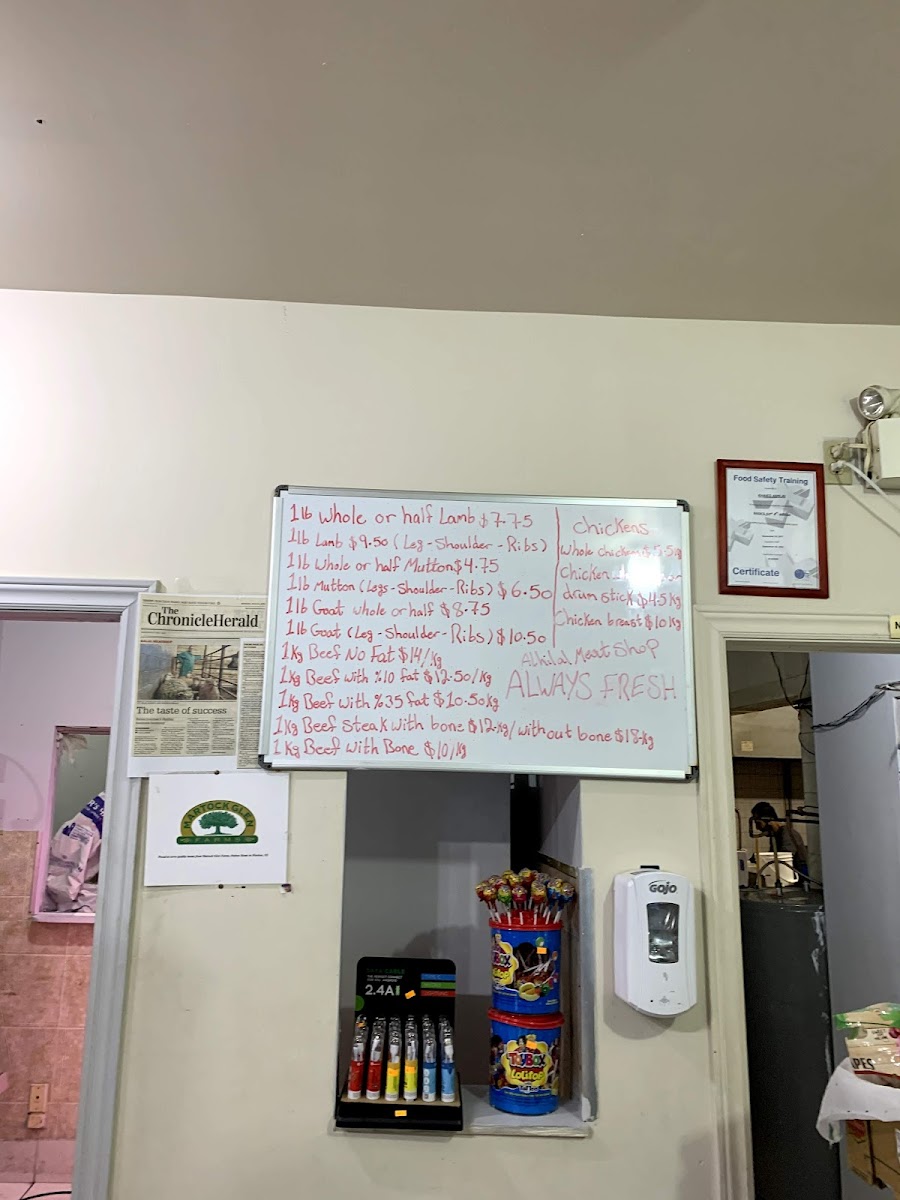 1lb whole or half Lamb $7.75
1lb Lamb $9.50 (Leg-Shoulder-Ribs)
1lb Whole or half Mutton $4.75
1lb Mutton (Legs-Shoulder-Ribs) $6.50
1lb Goat whole or half $8.75
1lb Goat (Leg-Shoulder-Ribs) $10.50
1Kg Beef No Fat $14/Kg
1Kg Beef with %10 fat $12.50/Kg
1Kg Beef with %35 fat $10.50Kg
1Kg Beef Steak with bone $12Kg/without bone $18Kg
1Kg Beef with Bone $10/Kg
chickens
Whole chicken
Chicken
drum stick $4.5 Kg
Chicken breast $10 Kg
Alkilal Meat Shop
ALWAYS FRESH
Food Safety Training
Certificate
The
ChronicleHerald
The taste of success
MARTOCK GLEN
FARMS
2.4A
GOJO
TOYBOX
Lolipop